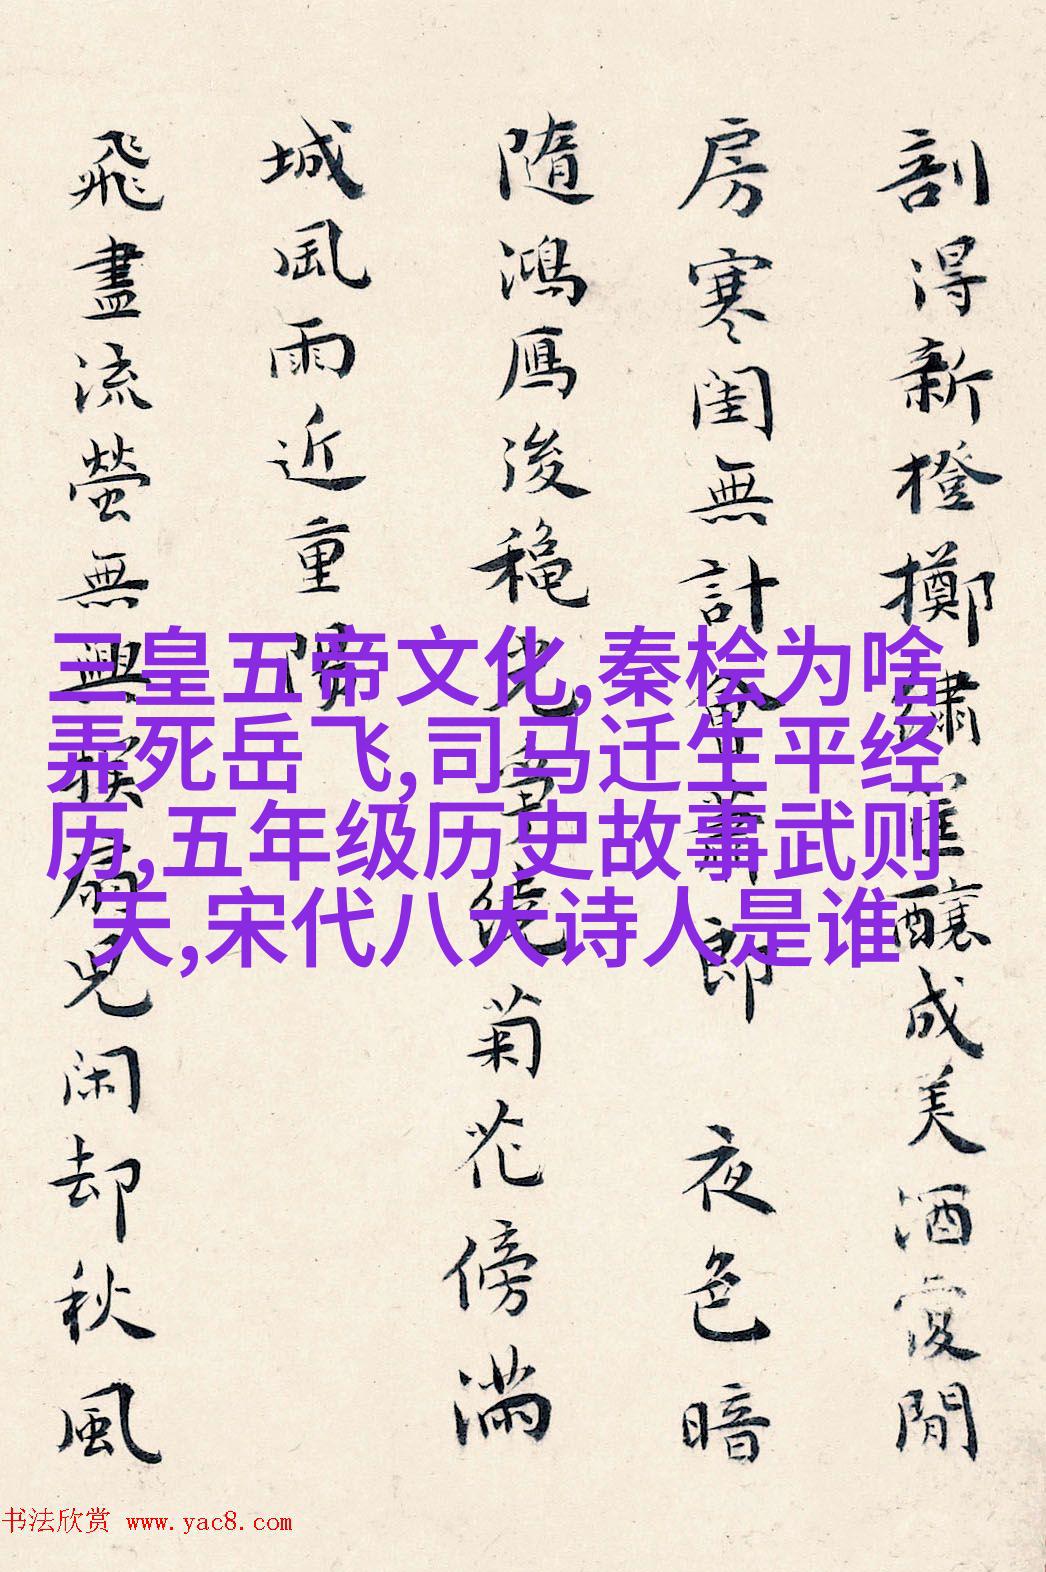 剖得新橙擲繡帷釀成美酒復閒
房寒閨無計奮蕭郎 夜色暗
隨鴻鴈後穐光牽繞菊花傍滿
城風雨近重陽
飛盡流螢無興撲扇兒閑却秋風
三皇五帝文化,秦桧为啥
弄死岳飞,司马迁生平经
历,五年级历史故事武则
天,宋代八大诗人是谁
书法欣赏 www.yac8.com